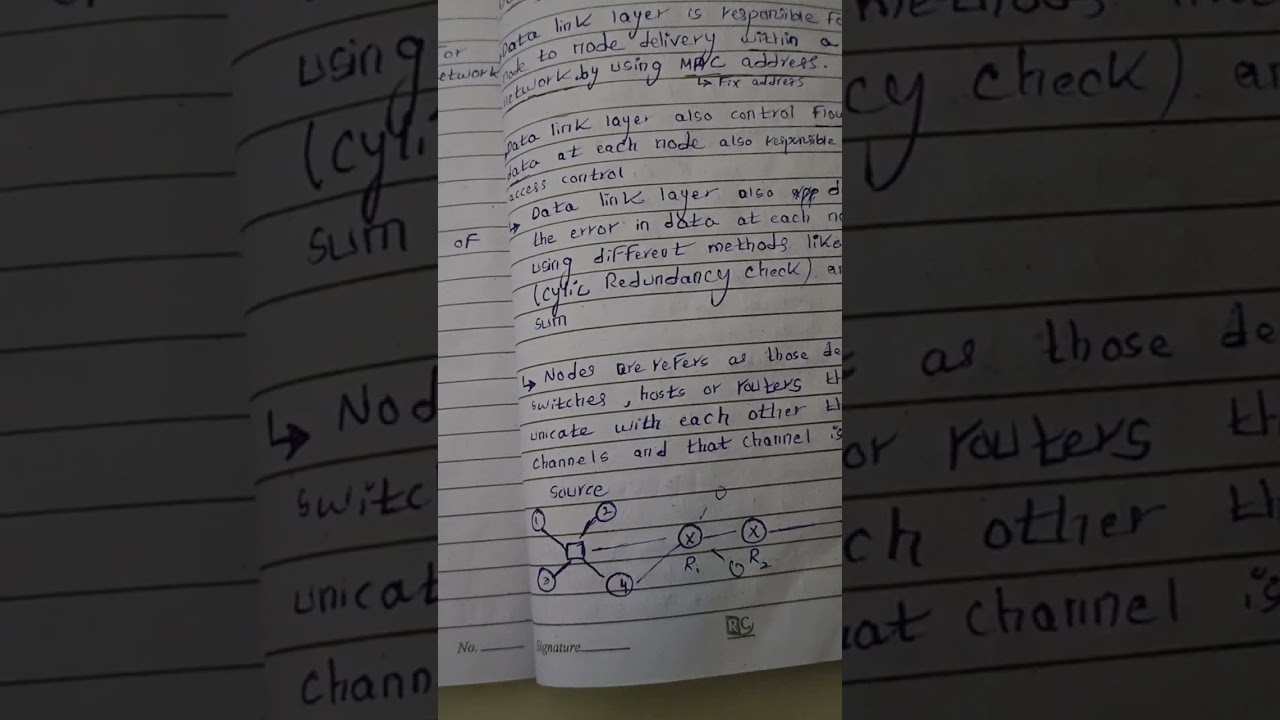 Data link layer is responsible
node to node delivery within a
network by using MAC address.
↳ Fix address
Data link layer also control Flow
data at each node also responsible
access control
↳ Data link layer also
the error in data at each
using different methods like
(cylic Redundancy check)
sum
↳ Nodes are refers as those
switches, hosts or routers
unicate with each other
channels and that channel is
Source
1 2
3 4
X X
R1 R2
RC
No. Signature
etwork
OF